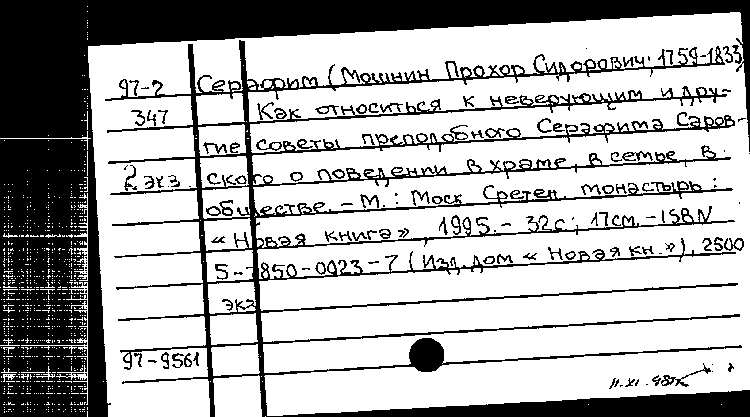 97-2 Серафим (Мошнин Прохор Сидорович; 1759-1833)
347 Как относиться к неверующим и дру-
гие советы преподобного Серафима Саров-
2 экз. ского о поведении в храме, в семье, в
обществе. - М.: Моск. Сретен. монастырь:
«Новая книга», 1995. - 32с.; 17см. - ISBN
5-7850-0023-7 (Изд. дом «Новая кн.»), 2500
экз
97-9561
11.XI.98